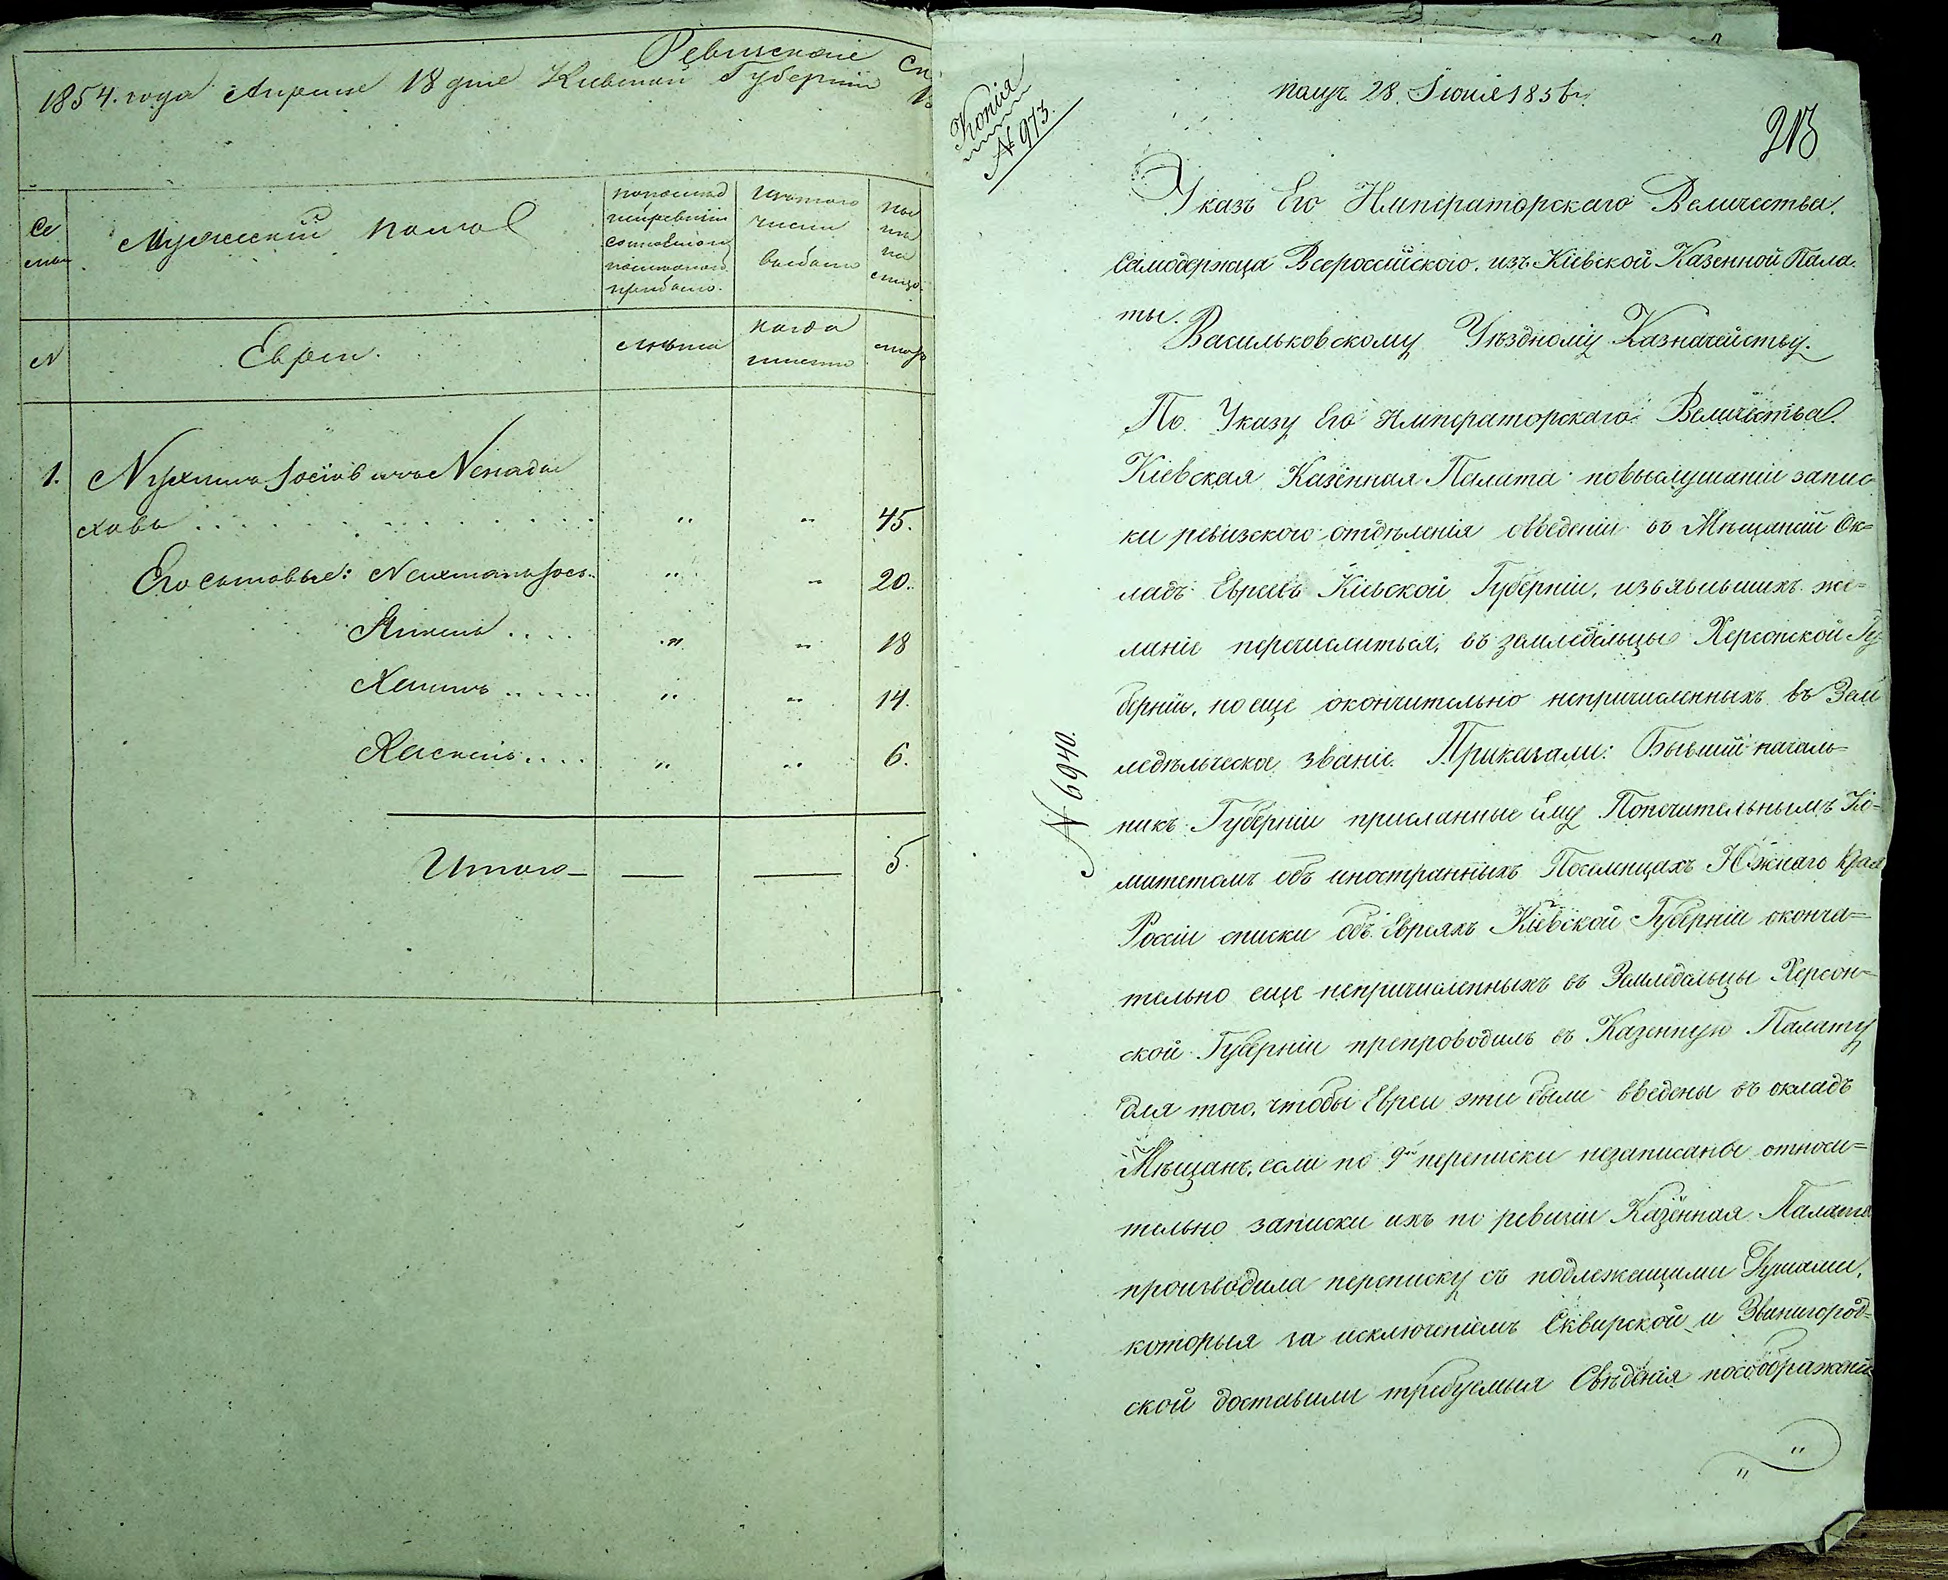 Ревизскаіе
1854. года Апреля 18 дня Киевской Губерніи
Се
мьи
Мужескій полъ
Изъ того
числа
выбыло
№
Евреи.
лѣта
когда
именно
1.
Нухимъ Іосіовичъ
45.
Его сыновье:
20.
18
14.
6.
Итого
5.
Копія
№ 973.
получ. 28. Іюня 1856 г.
213
Указъ Его Императорскаго Величества.
Самодержца Всероссійского. изъ Кіевской Казенной Пала-
ты.
Васильковскому Уѣздному Казначейству.
По Указу Его Императорскаго Величества.
Кіевская Казенная Палата повыслушаніи запис
ки ревизского отдѣленія овведеніи въ Мѣщаній Ок=
ладъ Евреевъ Кіевской Губерніи, изъявившихъ же=
ланіе перечислиться, въ земледѣльцы Херсонской Гу
берніи, но еще окончительно непричисленныхъ въ Зем
ледѣльческое званіе. Приказали: Бывшій началь=
никъ Губерніи присланные ему Попечительнымъ Ко=
митетомъ объ иностранныхъ Поселенцахъ Южнаго Края
Россіи списки объ Евреяхъ Кіевской Губерніи оконча=
тельно еще непричисленныхъ въ Земледѣльцы Херсон=
ской Губерніи препроводилъ въ Казенную Палату
для того, чтобы Евреи эти были введены въ окладъ
Мѣщанъ, если по 9й переписки незаписаны относи=
тельно записки ихъ по ревизіи Казенная Палата
производила переписку съ подлежащими Думами,
которыя за исключеніемъ Сквирской и Звенигород=
ской доставили требуемыя Свѣденія посоображеніи
№ 6940.